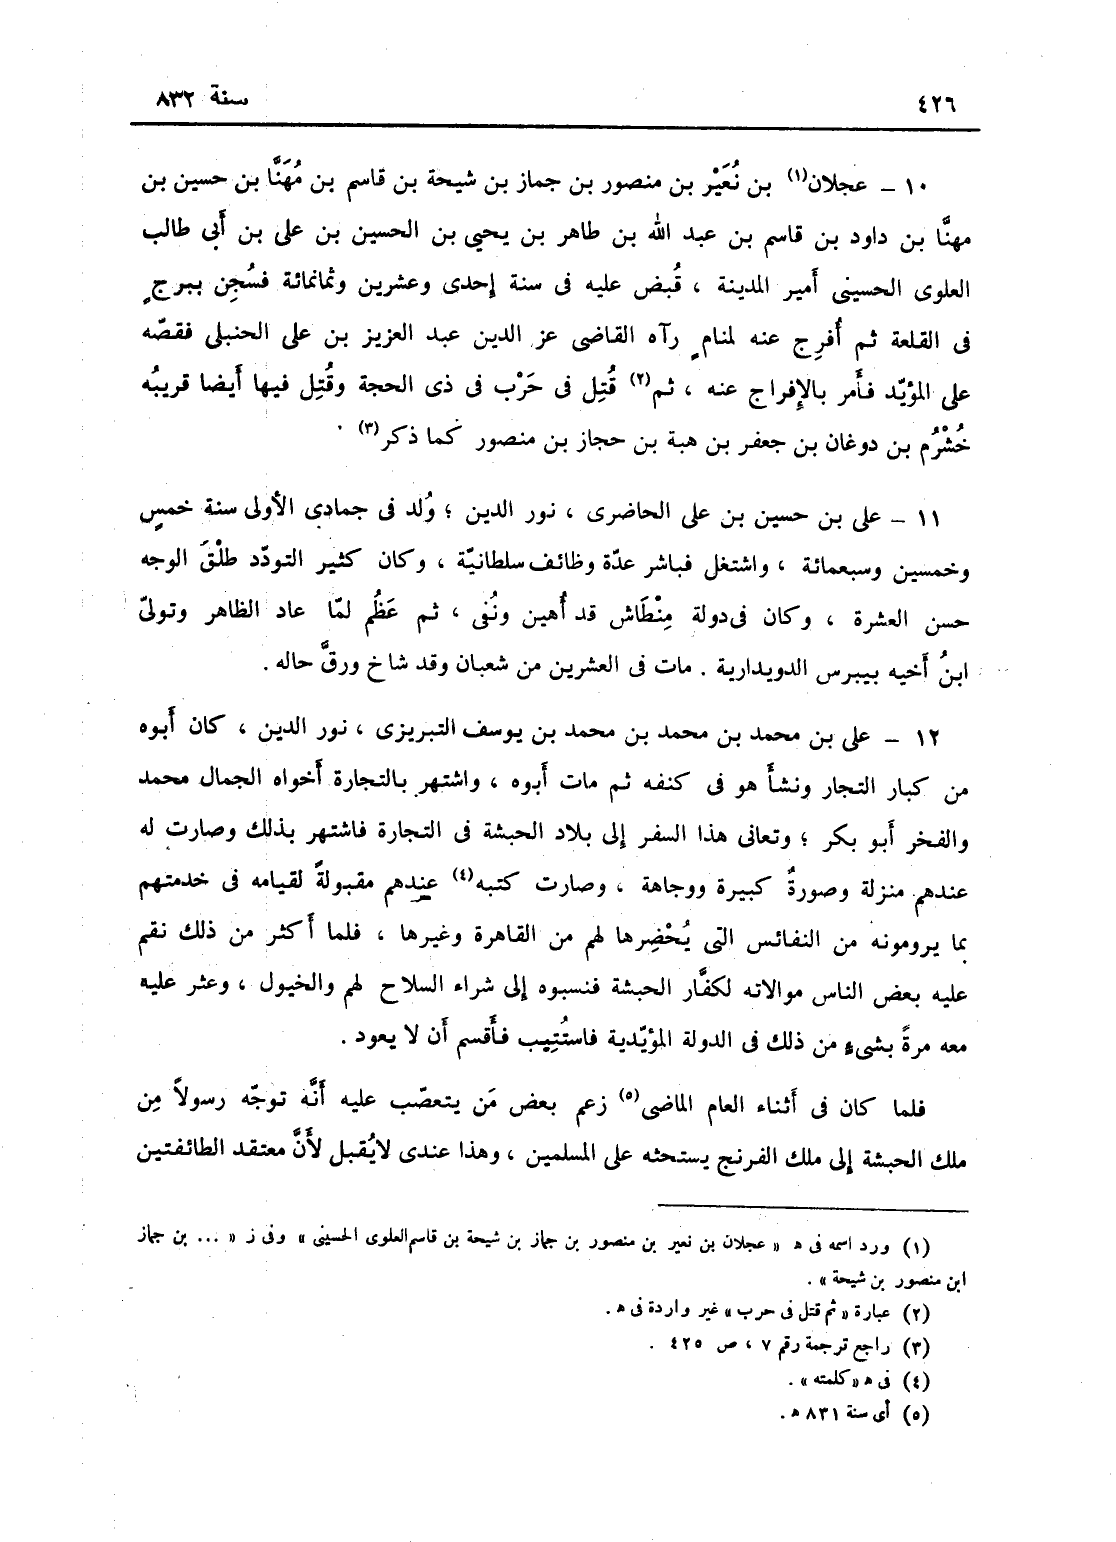 ٤٢٦
سنة ٨٣٢
١٠ – عجلان(١) بن نُعَيْر بن منصور بن جماز بن شيحة بن قاسم بن مُهَنَّا بن حسين بن
مهنَّا بن داود بن قاسم بن عبد الله بن طاهر بن يحيى بن الحسين بن على بن أبى طالب
العلوى الحسينى أمير المدينة ، قُبض عليه فى سنة إحدى وعشرين وثمانمائة فسُجِن ببرجٍ
فى القلعة ثم أُفرِج عنه لمنامٍ رآه القاضى عز الدين عبد العزيز بن على الحنبلى فقصّه
على المؤيّد فأَمر بالإفراج عنه ، ثم(٢) قُتِل فى حَرْب فى ذى الحجة وقُتِل فيها أَيضا قريبُه
خُشْرُم بن دوغان بن جعفر بن هبة بن حجاز بن منصور كما ذكر(٣) .
١١ – على بن حسين بن على الحاضرى ، نور الدين ؛ وُلد فى جمادى الأولى سنة خمسٍ
وخمسين وسبعمائة ، واشتغل فباشر عدّة وظائف سلطانيّة ، وكان كثير التودّد طلْقَ الوجه
حسن العشرة ، وكان فى دولة مِنْطَاش قد أُهين ونُفى ، ثم عَظُم لمّا عاد الظاهر وتولىّ
ابنُ أَخيه بيبرس الدويدارية . مات فى العشرين من شعبان وقد شاخ ورقَّ حاله .
١٢ – على بن محمد بن محمد بن محمد بن يوسف التبريزى ، نور الدين ، كان أَبوه
من كبار التجار ونشأَ هو فى كنفه ثم مات أَبوه ، واشتهر بالتجارة أَخواه الجمال محمد
والفخر أَبو بكر ؛ وتعانى هذا السفر إلى بلاد الحبشة فى التجارة فاشتهر بذلك وصارت له
عندهم منزلة وصورةٌ كبيرة ووجاهة ، وصارت كتبه(٤) عندهم مقبولةً لقيامه فى خدمتهم
بما يرومونه من النفائس التى يُحْضِرها لهم من القاهرة وغيرها ، فلما أَكثر من ذلك نقم
عليه بعض الناس موالاته لكفَّار الحبشة فنسبوه إلى شراء السلاح لهم والخيول ، وعثر عليه
معه مرةً بشىء من ذلك فى الدولة المؤيّدية فاستُتِيب فأَقسم أَن لا يعود .
فلما كان فى أَثناء العام الماضى(٥) زعم بعض مَن يتعصّب عليه أَنَّه توجّه رسولاً مِن
ملك الحبشة إلى ملك الفرنج يستحثه على المسلمين ، وهذا عندى لايُقبل لأَنَّ معتقد الطائفتين
(١) ورد اسمه فى ه « عجلان بن نعير بن منصور بن جماز بن شيحة بن قاسم العلوى الحسينى » وفى ز « ... بن جماز
ابن منصور بن شيحة » .
(٢) عبارة « ثم قتل فى حرب » غير واردة فى ه .
(٣) راجع ترجمة رقم ٧ ، ص ٤٢٥ .
(٤) فى ه « كلمته » .
(٥) أى سنة ٨٣١ ه .